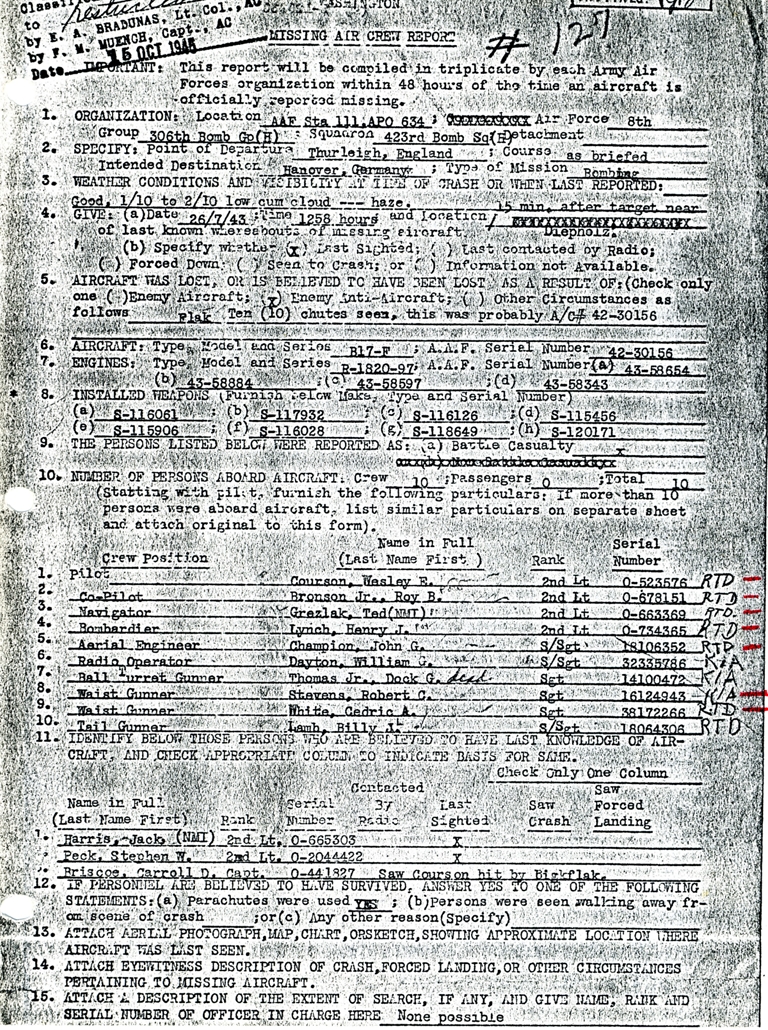 Classified
to Restricted WASHINGTON
by E. A. BRADUNAS, Lt. Col., AC
by F. M. MUENCH, Capt., AC
Date 15 OCT 1945
MISSING AIR CREW REPORT # 127
IMPORTANT: This report will be compiled in triplicate by each Army Air
Forces organization within 48 hours of the time an aircraft is
officially reported missing.
1. ORGANIZATION: Location AAF Sta 111,APO 634 ; Air Force 8th
Group 306th Bomb Gp(H) ; Squadron 423rd Bomb Sq(H) Detachment
2. SPECIFY: Point of Departure Thurleigh, England ; Course as briefed
Intended Destination Hanover, Germany ; Type of Mission Bombing
3. WEATHER CONDITIONS AND VISIBILITY AT TIME OF CRASH OR WHEN LAST REPORTED:
Good, 1/10 to 2/10 low cum cloud --- haze. 15 min. after target near
4. GIVE: (a)Date 26/7/43 ;Time 1258 hours and Location/
of last known whereabouts of missing aircraft. Diepholz.
(b) Specify whether (x) Last Sighted; ( ) Last contacted by Radio;
( ) Forced Down; ( ) Seen to Crash; or ( ) Information not Available.
5. AIRCRAFT WAS LOST, OR IS BELIEVED TO HAVE BEEN LOST AS A RESULT OF:(Check only
one ( )Enemy Aircraft; (x) Enemy Anti-Aircraft; ( ) Other Circumstances as
follows Flak Ten (10) chutes seen, this was probably A/C# 42-30156
6. AIRCRAFT: Type, Model and Series B17-F ; A.A.F. Serial Number 42-30156
7. ENGINES: Type, Model and Series R-1820-97; A.A.F. Serial Number(a) 43-58654
(b) 43-58884 ;(c) 43-58597 ;(d) 43-58343
8. INSTALLED WEAPONS (Furnish below Make, Type and Serial Number)
(a) S-116061 ; (b) S-117932 ; (c) S-116126 ; (d) S-115456
(e) S-115906 ; (f) S-116028 ; (g) S-118649 ; (h) S-120171
9. THE PERSONS LISTED BELOW WERE REPORTED AS: (a) Battle Casualty x
10. NUMBER OF PERSONS ABOARD AIRCRAFT: Crew 10 ;Passengers 0 ;Total 10
(Starting with pilot, furnish the following particulars: If more than 10
persons were aboard aircraft, list similar particulars on separate sheet
and attach original to this form).
Name in Full Serial
Crew Position (Last Name First ) Rank Number
1. Pilot Courson, Wesley E. 2nd Lt 0-523576 RTD
2. Co-Pilot Bronson Jr., Roy B. 2nd Lt 0-678151 RTD
3. Navigator Grezlak, Ted(NMI) 2nd Lt 0-663369 RTD
4. Bombardier Lynch, Henry J. 2nd Lt 0-734365 RTD
5. Aerial Engineer Champion, John G. S/Sgt 18106352 RTD
6. Radio Operator Dayton, William G. S/Sgt 32335786 KIA
7. Ball Turret Gunner Thomas Jr., Dock G. dead Sgt 14100472 KIA
8. Waist Gunner Stevens, Robert C. Sgt 16124943 KIA
9. Waist Gunner White, Cedric A. Sgt 38172266 RTD
10. Tail Gunner Lamb, Billy J. S/Sgt 18064306 RTD
11. IDENTIFY BELOW THOSE PERSONS WHO ARE BELIEVED TO HAVE LAST KNOWLEDGE OF AIR-
CRAFT, AND CHECK APPROPRIATE COLUMN TO INDICATE BASIS FOR SAME.
Check Only One Column
Contacted Saw
Name in Full Serial By Last Saw Forced
(Last Name First) Rank Number Radio Sighted Crash Landing
1. Harris, Jack (NMI) 2nd Lt. 0-665303 X
Peck, Stephen W. 2nd Lt. 0-2044422 X
Briscoe, Carroll D. Capt. 0-441827 Saw Courson hit by Bigkflak.
12. IF PERSONNEL ARE BELIEVED TO HAVE SURVIVED, ANSWER YES TO ONE OF THE FOLLOWING
STATEMENTS:(a) Parachutes were used YES ; (b)Persons were seen walking away fr-
om scene of crash ;or(c) Any other reason(Specify)
13. ATTACH AERIAL PHOTOGRAPH,MAP,CHART,ORSKETCH,SHOWING APPROXIMATE LOCATION WHERE
AIRCRAFT WAS LAST SEEN.
14. ATTACH EYEWITNESS DESCRIPTION OF CRASH,FORCED LANDING,OR OTHER CIRCUMSTANCES
PERTAINING TO MISSING AIRCRAFT.
15. ATTACH A DESCRIPTION OF THE EXTENT OF SEARCH, IF ANY, AND GIVE NAME, RANK AND
SERIAL NUMBER OF OFFICER IN CHARGE HERE None possible